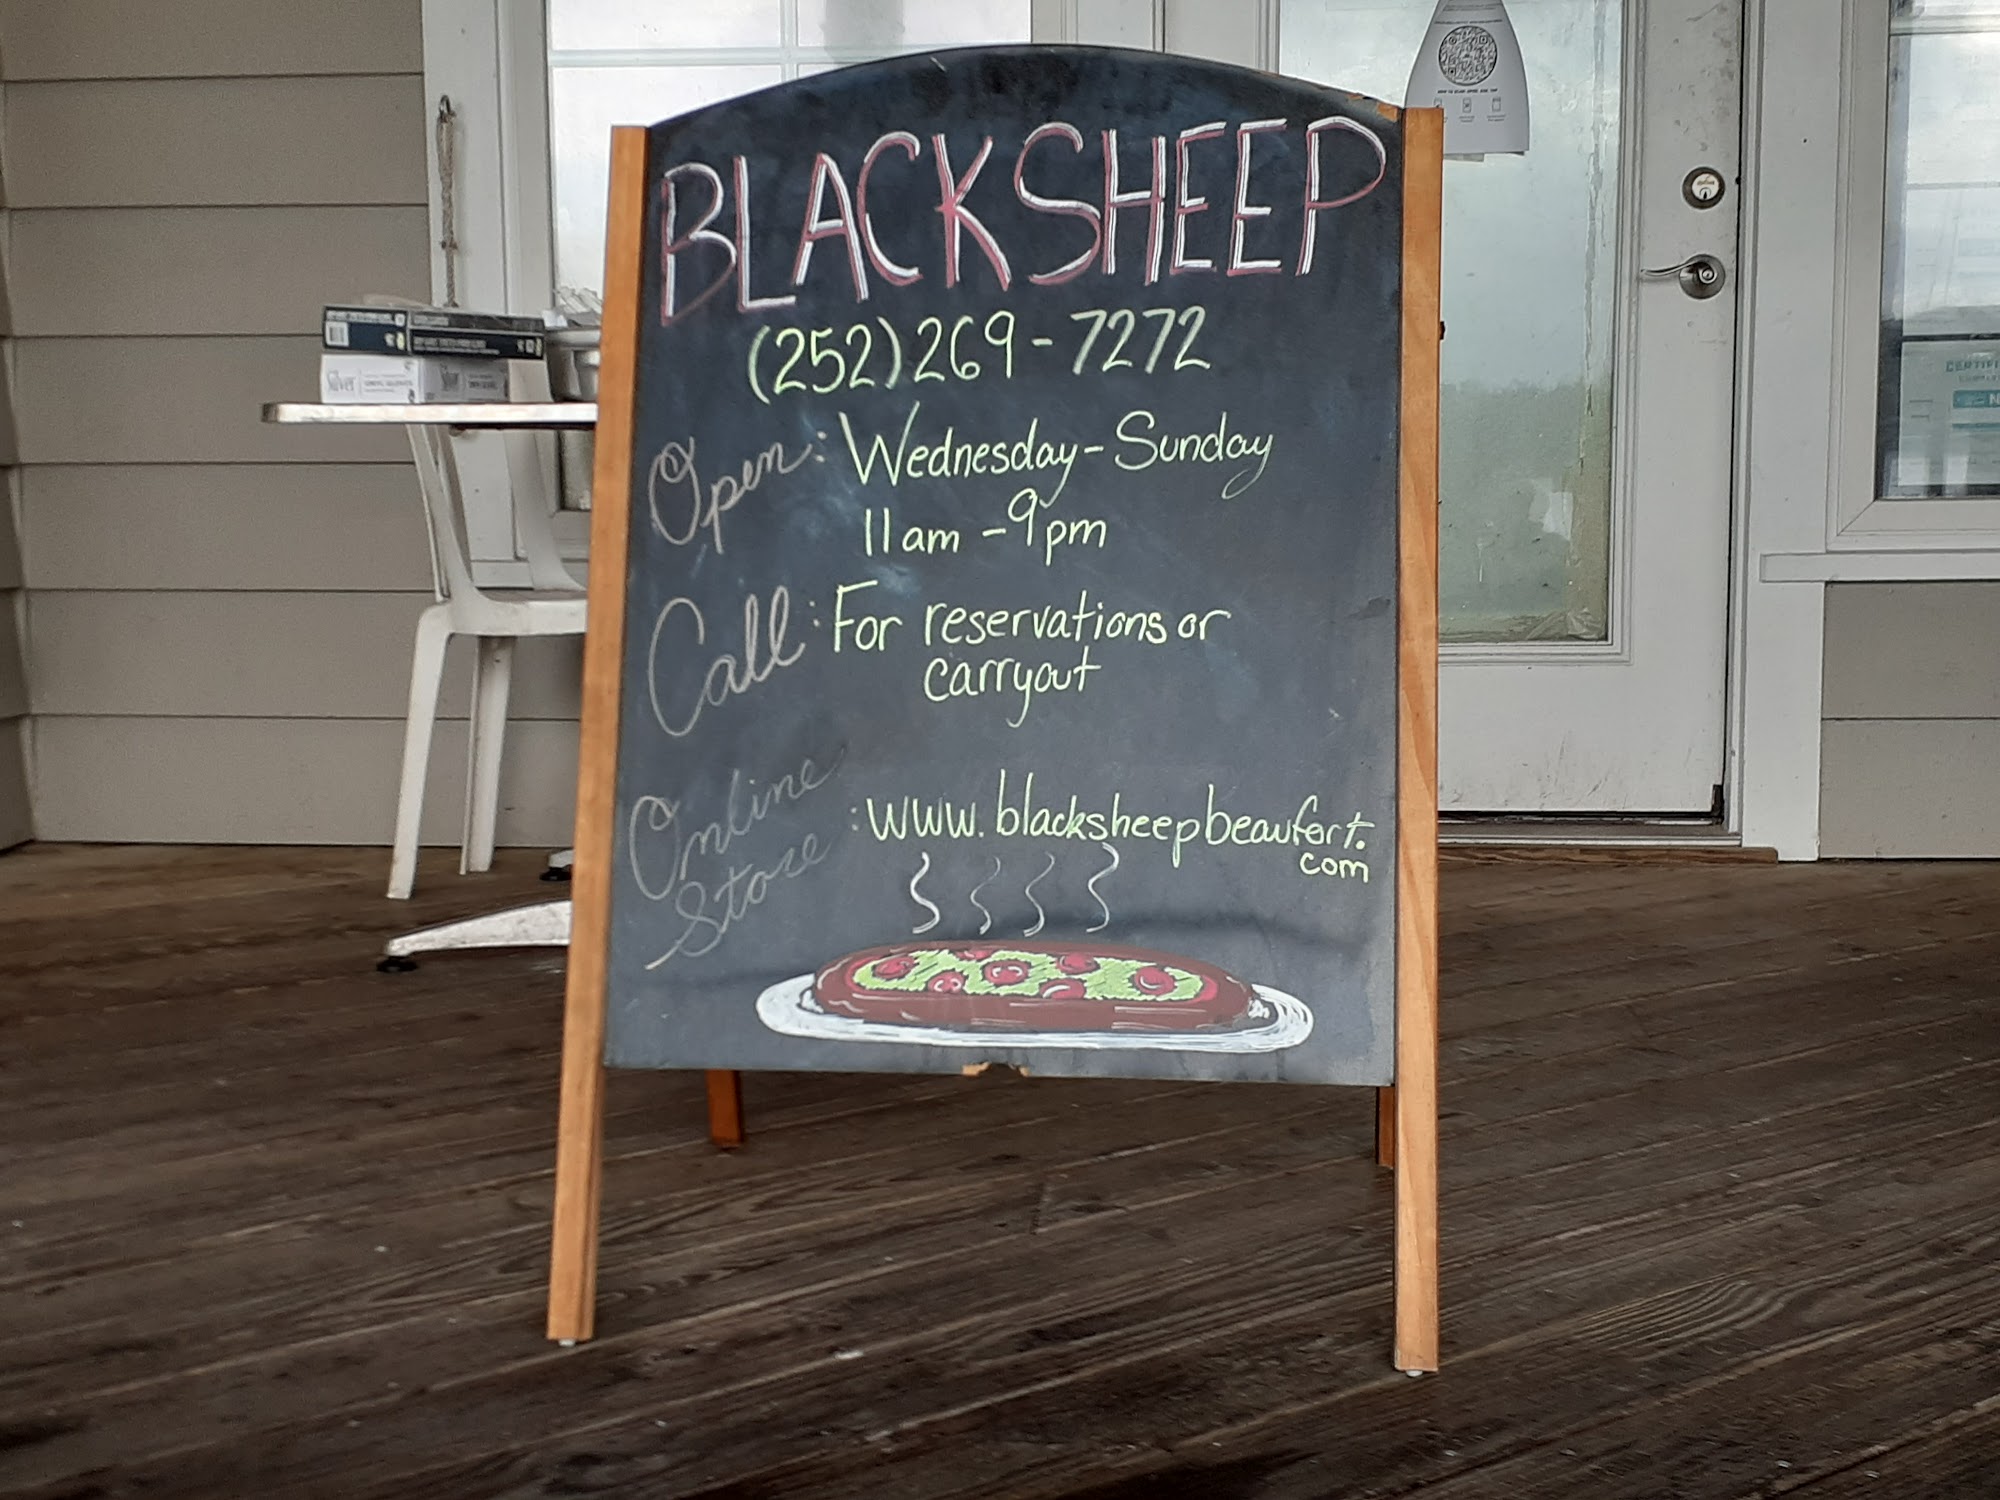 BLACK SHEEP
(252) 269-7272
Open: Wednesday-Sunday
11am-9pm
Call: For reservations or
carryout
Online
Store
:www.blacksheepbeaufort.
com
Silver
CERTIFI